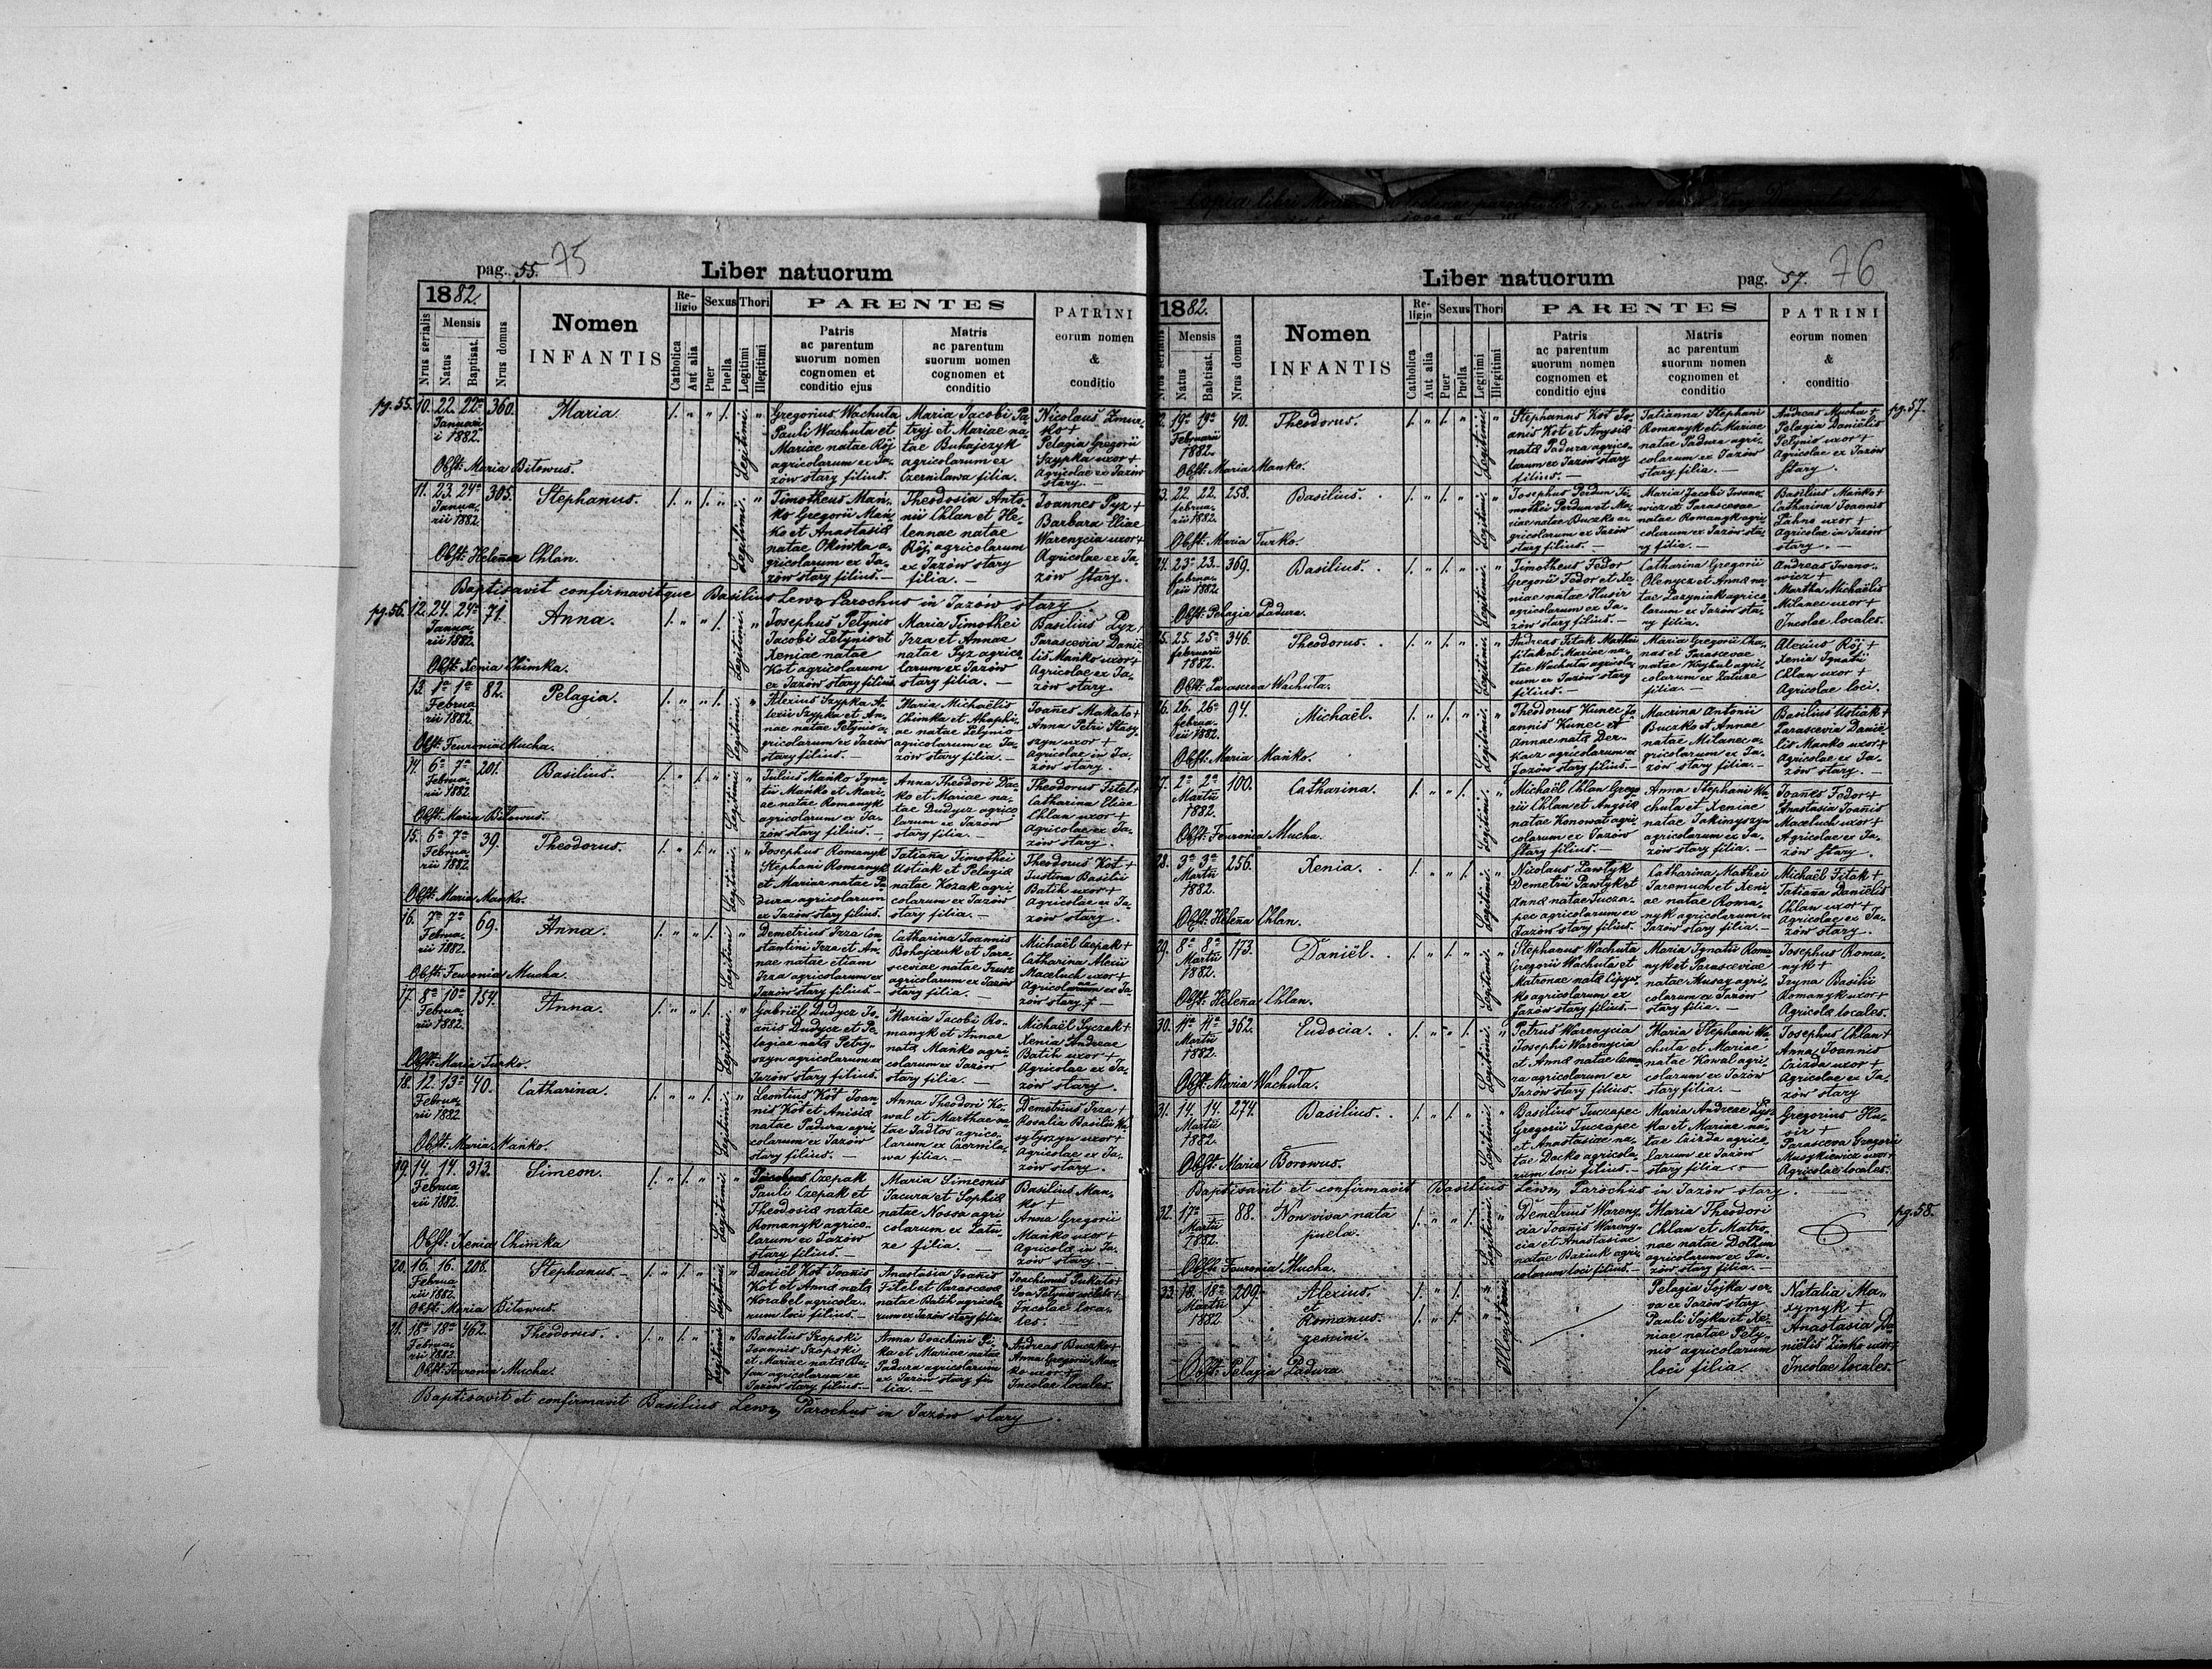 pag. 55. 75
Liber natuorum
1882.
Nrus serialis
Mensis
Natus
Baptisat.
Nrus domus
Nomen
INFANTIS
Religio
Catholica
Aut alia
Sexus
Puer
Puella
Thori
Legitimi
Illegitimi
PARENTES
Patris
ac parentum
suorum nomen
cognomen et
conditio ejus
Matris
ac parentum
suorum nomen
cognomen et
conditio
PATRINI
eorum nomen
&
conditio
pg. 55. 10. 22. 22a 360. Maria
Januari
i 1882.
Obst: Maria Bitowus.
Legitimi.
Gregorius Wachuta
Pauli Wachuta et
Mariae natae Rój
agricolarum ex Ja-
zów stary filius.
Maria Jacobi Pa-
tryj et Mariae na-
tae Buhajczyk
agricolarum ex
Czernilawa filia.
Nicolaus Żmur-
ko +
Pelagia Gregorii
Szypka uxor +
Agricolae ex Jazów
stary. —
11. 23. 24a 305. Stephanus.
Janua-
rii 1882.
Obst: Helena Chlan.
Legitimi.
Timotheus Mań-
ko Gregorii Mań
ko et Anastasiæ
natae Okiwka a-
gricolarum ex Ja-
zów stary filius. —
Theodosia Anto-
nii Chlan et He-
lennae natae
Rój agricolarum
ex Jazów stary
filia. —
Joannes Pyz +
Barbara Eliae
Warenycia uxor +
Agricolae ex Ja-
zów stary.
Baptisavit confirmavitque Basilius Lewy Parochus in Jazów stary
pg. 56. 12. 24. 24a 71. Anna.
Janua
rii 1882.
Obst: Xenia Chimka.
Legitimi.
Josephus Petynio
Jacobi Petynio et
Xeniae natae
Kot agricolarum
ex Jazów stary filius
Maria Timothei
Jzza et Annae
natae Pyz agrico
larum ex Jazów
stary filia. —
Basilius Pyz,
Parascevia Danie
lis Mańko uxor +
Agricolae ex Ja-
zów stary.
13. 1a 1a 82. Pelagia.
Februa
rii 1882.
Obst: Feuronia Mucha.
Legitimi.
Alexius Szypka A-
lexii Szypka et An-
nae natae Petynio a-
gricolarum ex Jazów
stary filius. —
Maria Michaelis
Chimka et Ahaphi-
ae natae Petynio
agricolarum ex Ja-
zów stary filia.
Joañes Makato +
Anna Petri Stasy
szyn uxor +
Agricolae in Ja-
zów stary.
14. 6a 7a 201. Basilius.
Februa
rii 1882
Obst: Maria Bitowus.
Legitimi
Julius Mańko Igna-
tii Mańko et Mari-
ae natae Romanyk
agricolarum ex Ja-
zów stary filius. —
Anna Theodori Dac-
ko et Mariae na-
tae Dudycz agrico
larum ex Jazów
stary filia. —
Theodorus Fitel +
Catharina Eliae
Chlan uxor +
Agricolae ex Ja-
zów stary.
15. 6a 7a 39. Theodorus.
Februa
rii 1882.
Obst: Maria Mańko.
Legitimi.
Josephus Romanyk
Stephani Romanyk
et Mariae natae Pa
dura agricolarum
ex Jazów stary filius.
Tatiana Timothei
Ustiak et Pelagiæ
natae Kozak agri-
colarum ex Jazów
stary filia. —
Theodorus Kot +
Justina Basilii
Batih uxor +
Agricolae ex Ja-
zów stary.
16. 7a 7a 69. Anna.
Februa-
rii 1882.
Obst: Feuronia Mucha.
Legitimi
Demetrius Jzza Con
stantini Jzza et An-
nae natae etiam
Jzza agricolarum ex
Jazów stary filius. —
Catharina Joannis
Bohajczuk et Para-
sceviae natae Frusz
agricolarum ex Jazów
stary filia. —
Michaël Czepak +
Catharina Alexii
Maceluch uxor +
Agricolarum ex Ja-
zów stary.
17. 8a 10a 154. Anna.
Februa-
rii 1882.
Obst: Maria Turko.
Legitimi.
Gabriël Dudycz Jo-
anis Dudycz et Pe-
lagiae natæ Petry-
szyn agricolarum ex
Jazów stary filius.
Maria Jacobi Ro-
manyk et Annae
natæ Mańko agri-
colarum ex Jazów
stary filia. —
Michaël Syczak +
Xenia Andreae
Batih uxor +
Agricolae ex Ja-
zów stary.
18. 12. 13a 40. Catharina.
Februa-
rii 1882
Obst: Maria Mańko.
Legitimi.
Leontius Kot Joan
nis Kot et Anisiæ
natae Padura agri-
colarum ex Jazów
stary filius. —
Anna Theodori Ko-
wal et Marthae na-
tae Jadtos agrico-
larum ex Czernila-
wa filia. —
Demetrius Jzza +
Rosalia Basilii Wa
sylyszyn uxor +
Agricolae ex Ja-
zów stary.
19. 14. 14. 313. Simeon.
Februa
rii 1882.
Obst: Xenia Chimka
Legitimi.
Jacobus Czepak
Pauli Czepak et
Theodosiæ natae
Romanyk agrico-
larum ex Jazów
stary filius. —
Maria Simeonis
Jacura et Sophiæ
natae Nossa agri
colarum ex Zatu-
ze filia. —
Basilius Mań-
ko +
Anna Gregorii
Mańko uxor +
Agricolæ in Ja-
zów stary —
20. 16. 16. 208. Stephanus. —
Februa
rii 1882.
Obst: Maria Bitowus.
Legitimi
Daniël Kot Joañis
Kot et Annæ natæ
Korabel agricola-
rum loci filius. —
Anastasia Joañis
Fitel et Parascevæ
natae Batih agricola
rum ex Jazów stary filia.
Joachimus Pukalo +
Eva Petynio +
Incolae loca-
les. —
21. 18a 18a 462. Theodorus.
Februa
rii 1882
Obst: Feuronia Mucha.
Legitimi
Basilius Szopski
Joannis Szopski
et Mariae natæ Bu-
agricolarum ex
Jazów stary filius. —
Anna Joachimi Fi-
ka et Mariae natae
Padura agricolarum
ex Jazów stary fi
lia. —
Andreas Buczko +
Anna Gregorii Mań
ko uxor +
Incolae locales.
Baptisavit et confirmavit Basilius Lewy Parochus in Jazów stary.
Liber natuorum
pag. 57. 76
1882.
Nrus serialis
Mensis
Natus
Babtisat.
Nrus domus
Nomen
INFANTIS
Religio
Catholica
Aut alia
Sexus
Puer
Puella
Thori
Legitimi
Illegitimi
PARENTES
Patris
ac parentum
suorum nomen
cognomen et
conditio ejus
Matris
ac parentum
suorum nomen
cognomen et
conditio
PATRINI
eorum nomen
&
conditio
pg. 57.
2. 19a 19a 40. Theodorus.
Februarii
1882.
Obst: Maria Mańko.
Legitimi.
Stephanus Kot Jo-
anis Kot et Anysiæ
natæ Padura agrico-
larum ex Jazów stary
filius.
Tatianna Stephani
Romanyk et Mariae
natae Padura agri-
colarum ex Jazów
stary filia. —
Andreas Mucha +
Pelagia Daniëlis
Petynio uxor +
Agricolae ex Jazów
stary.
3. 22. 22. 258. Basilius.
februa-
rii 1882.
Obst: Maria Turko.
Legitimi.
Josephus Perdun Ti-
mothei Perdun et Ma-
riae natae Buczko ex
gricolarum ex Jazów
stary filius. —
Maria Jacobi Iwano-
wicz et Parascevae
natae Romanyk agri
colarum ex Jazów sta-
ry filia. —
Basilius Mańko +
Catharina Joannis
Lahna uxor +
Agricolae in Jazów
stary. —
24. 23a 23. 369. Basilius.
februa-
rii 1882
Obst: Pelagia Padura.
Legitimi.
Timotheus Fedor
Gregorii Fedor et Xe-
niae natae Husir
agricolarum ex Ja-
zów stary filius. —
Catharina Gregorii
Olenycz et Annæ na-
tae Lazyniak agrico
larum ex Jazów sta-
ry filia.
Andreas Iwano-
wicz +
Martha Michaëlis
Milanec uxor +
Incolae locales.
25. 25. 25a 346. Theodorus.
februarii
1882.
Obst: Parasceva Wachuta.
Legitimi.
Andreas Fitak Mathei
Fitak et Mariae na-
tae Wachuta agricola
rum ex Jazów stary
filius. —
Maria Gregorii Cha-
nas et Parascevae
natae Koyhal agri
colarum ex Zatuze
filia. —
Alexius Rój +
Xenia Ignatii
Chlan uxor +
Agricolae loci.
26. 26. 26a 94. Michaël.
februa-
rii 1882.
Obst: Maria Mańko.
Legitimi.
Theodorus Kunec Jo
annis Kunec et
Annae natæ Der-
kacz agricolarum ex
Jazów stary filius. —
Macrina Antonii
Buczko et Annae
natae Milanec a-
gricolarum ex Ja-
zów stary filia. —
Basilius Ustiak +
Parascevia Danië-
lis Mańko uxor +
Agricolae ex Ja-
zów stary. —
27. 2a 2a 100. Catharina.
Martii
1882.
Obst: Feuronia Mucha.
Legitimi.
Michaël Chlan Grego
rii Chlan et Anysiæ
natae Konowat agri
colarum ex Jazów
stary filius. —
Anna Stephani Wa
chuta et Xeniae
natae Jakimyszyn
agricolarum ex Ja-
zów stary filia. —
Joañes Fedor +
Anastasia Joañis
Maceluch uxor +
Agricolae ex Ja-
zów stary.
28. 3a 3a 256. Xenia.
Martii
1882.
Obst: Helena Chlan.
Legitimi.
Nicolaus Pawlyk
Demetrii Pawlyk et
Annæ natae Tucza-
pec agricolarum ex
Jazów stary filius.
Catharina Mathei
Jaremuch et Xeni
ae natae Roma-
nyk agricolarum ex
Jazów stary filia. —
Michaël Fitak +
Tatiana Daniëlis
Chlan uxor +
Agricolae ex Ja-
zów stary.
29. 8a 8a 173. Daniël.
Martii
1882.
Obst: Helena Chlan.
Legitimi.
Stephanus Wachuta
Gregorii Wachuta et
Matronae natæ Cipyw-
ko agricolarum ex
Jazów stary filius. —
Maria Ignatii Roma
nyk et Parasceviae
natae Husay agri-
colarum ex Jazów
stary filia. —
Josephus Roma-
nyk +
Iryna Basilii
Romanyk uxor +
Agricolæ locales.
30. 11a 11a 362. Eudocia.
Martii
1882.
Obst: Maria Wachuta.
Legitimi.
Petrus Warenycia
Josephi Warenycia
et Annæ natae Cema
ra agricolarum ex
Jazów stary filius.
Maria Stephani Wa
chuta et Mariae
natae Kowal agri-
colarum ex Jazów
stary filia. —
Josephus Chlan +
Anna Joannis
Lrizda uxor +
Agricolae ex Ja-
zów stary
31. 14. 14. 274. Basilius.
Martii
1882.
Obst: Maria Borowus.
Legitimi.
Basilius Tuczapec
Gregorii Tuczapec
et Anastasiae na-
tae Dacko agricola-
rum loci filius. —
Maria Andreae Łysz
ka et Mariae na-
tae Lrizda agrico
larum ex Jazów
stary filia. —
Gregorius Hu-
sir +
Parasceva Gregorii
Muszkiewicz uxor +
Agricolae locales.
Baptisavit et confirmavit Basilius Lewy Parochus in Jazów stary.
pg. 58.
32. 17a — 88. Non viva nata
Martii
1882.
puela.
Obst: Feuronia Mucha.
Legitimi
Demetrius Wareny-
cia Joañis Wareny-
cia et Anastasiae
natae Baziuk agri-
colarum loci filius. —
Maria Theodori
Chlan et Matro-
nae natae Dothun
agricolarum ex Ja-
zów stary filia. —
33. 18. 18a 209. Alexius.
Martii
1882
et
Romanus.
gemini.
Obst: Pelagia Padura
Illegitimi
Pelagia Sojka ser-
va ex Jazów stary
Pauli Sojka et Xe-
niae natae Pety-
nio agricolarum
loci filia.
Natalia Ma-
xymyk +
Anastasia Da
niëlis Zinko uxor +
Incolae locales. —